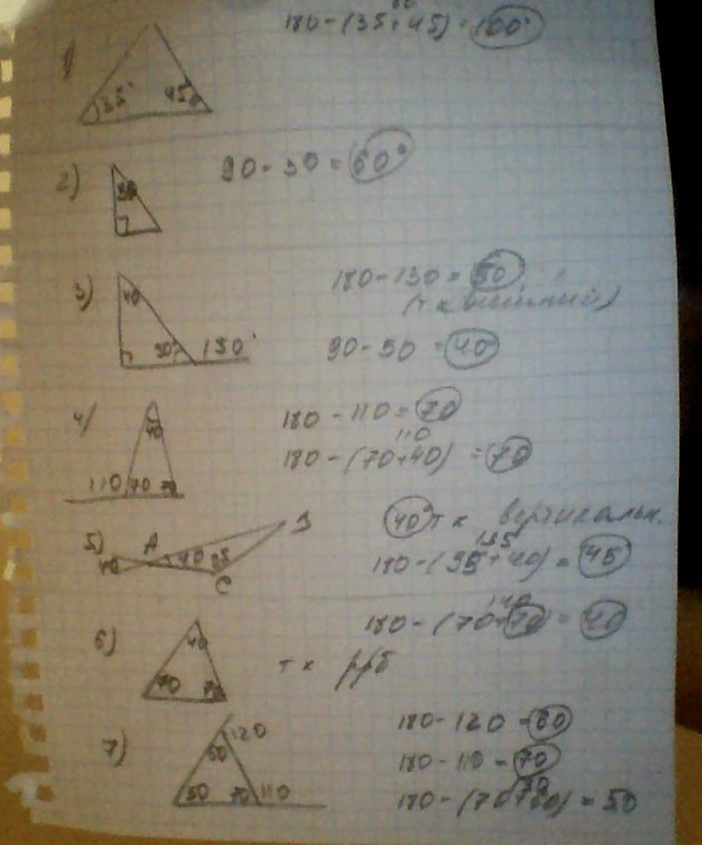 80
1) 180-(35+45)=100°
35° 45
2) 90-30=60°
30
3) 180-130=50
40 (т к внешний)
50° 130° 90-50=40°
4) 180-110=70
40 110
110 70 70 180-(70+40)=70
5) 40° т к вертикальн.
A B 135
40 40 95 180-(95+40)=45
C
6) 140
40 180-(70+70)=40
70 70 т к р/б
7) 180-120=60
120 180-110=70
60 130
50 70 110 180-(70+60)=50